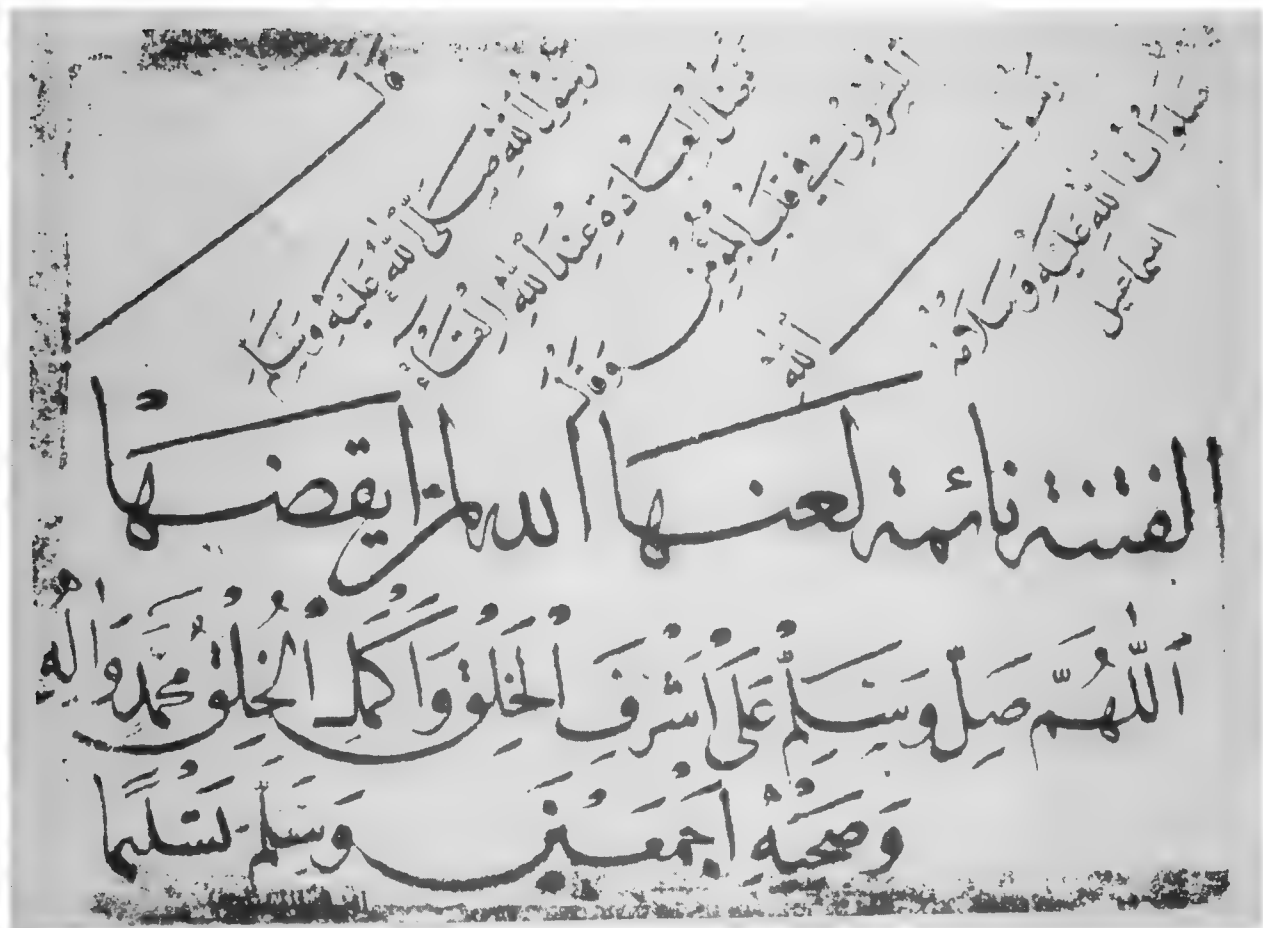 قال
رسول الله صلى الله عليه وسلم
افضل العبادة عند الله القاء
السرور في قلب المؤمن
وقال
رسول الله
صلوات الله عليه وسلامه
اسماعيل
الفتنة نائمة لعنها الله لمن ايقضها
اَللّٰهُمَّ صَلِّ وَسَلِّمْ عَلَى اَشْرَفِ الْخَلْقِ وَاَكْمَلِ الْخُلْقِ مُحَمَّدٍ وَاٰلِهِ
وَصَحْبِهِ اَجْمَعِينَ وَسَلَّمَ تَسْلِيمًا